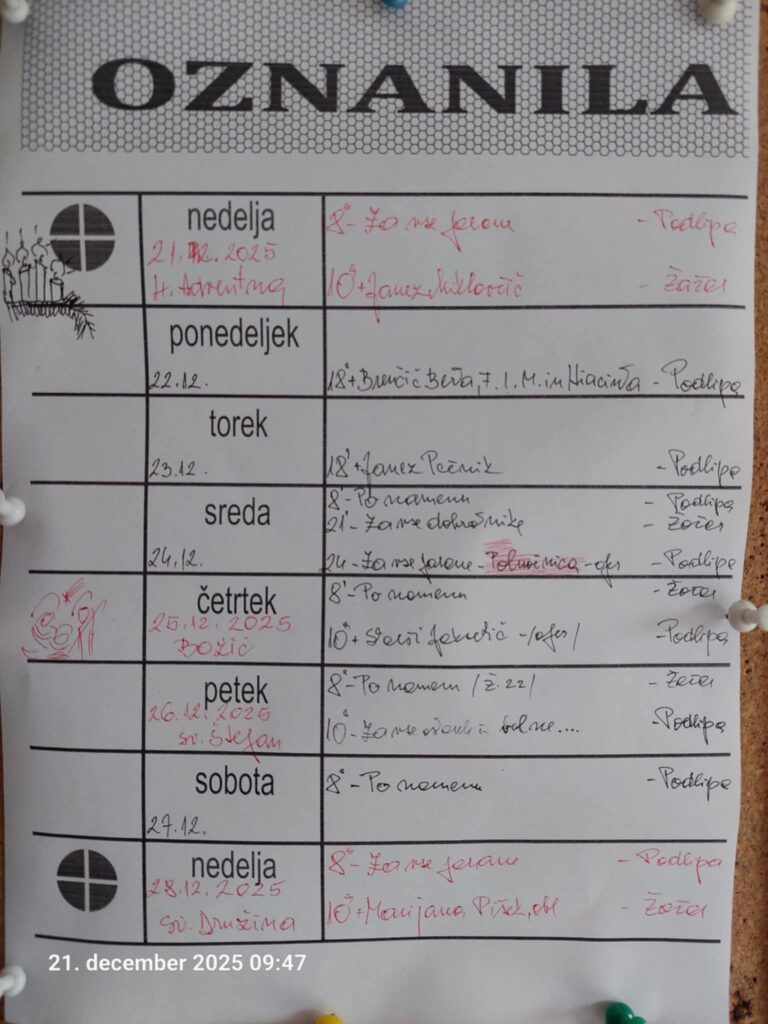 OZNANILA
nedelja
21.12.2025
4. Adventna
8° - Za vse farane - Podlipa
10° + Janez Miklavčič - Žažar
ponedeljek
22.12.
18° + Brenčič Berta, 7. l. M. in Hiacinta - Podlipa
torek
23.12.
18° + Janez - Podlipa
sreda
24.12.
8° - Po namenu - Podlipa
21° - Za vse dobrotnike - Žažar
24 - Za vse farane - Polnočnica - ofer - Podlipa
četrtek
25.12.2025
BOŽIČ
8° - Po namenu - Žažar
10° + - /ofer/ - Podlipa
petek
26.12.2025
sv. Štefan
8° - Po namenu /Ž. 22/ - Žažar
10° - Za vse in bolne.... - Podlipa
sobota
27.12.
8° - Po namenu - Podlipa
nedelja
28.12.2025
Sv. Družina
8° - Za vse farane - Podlipa
10° + Marijana Pišek, obl - Žažar
21. december 2025 09:47